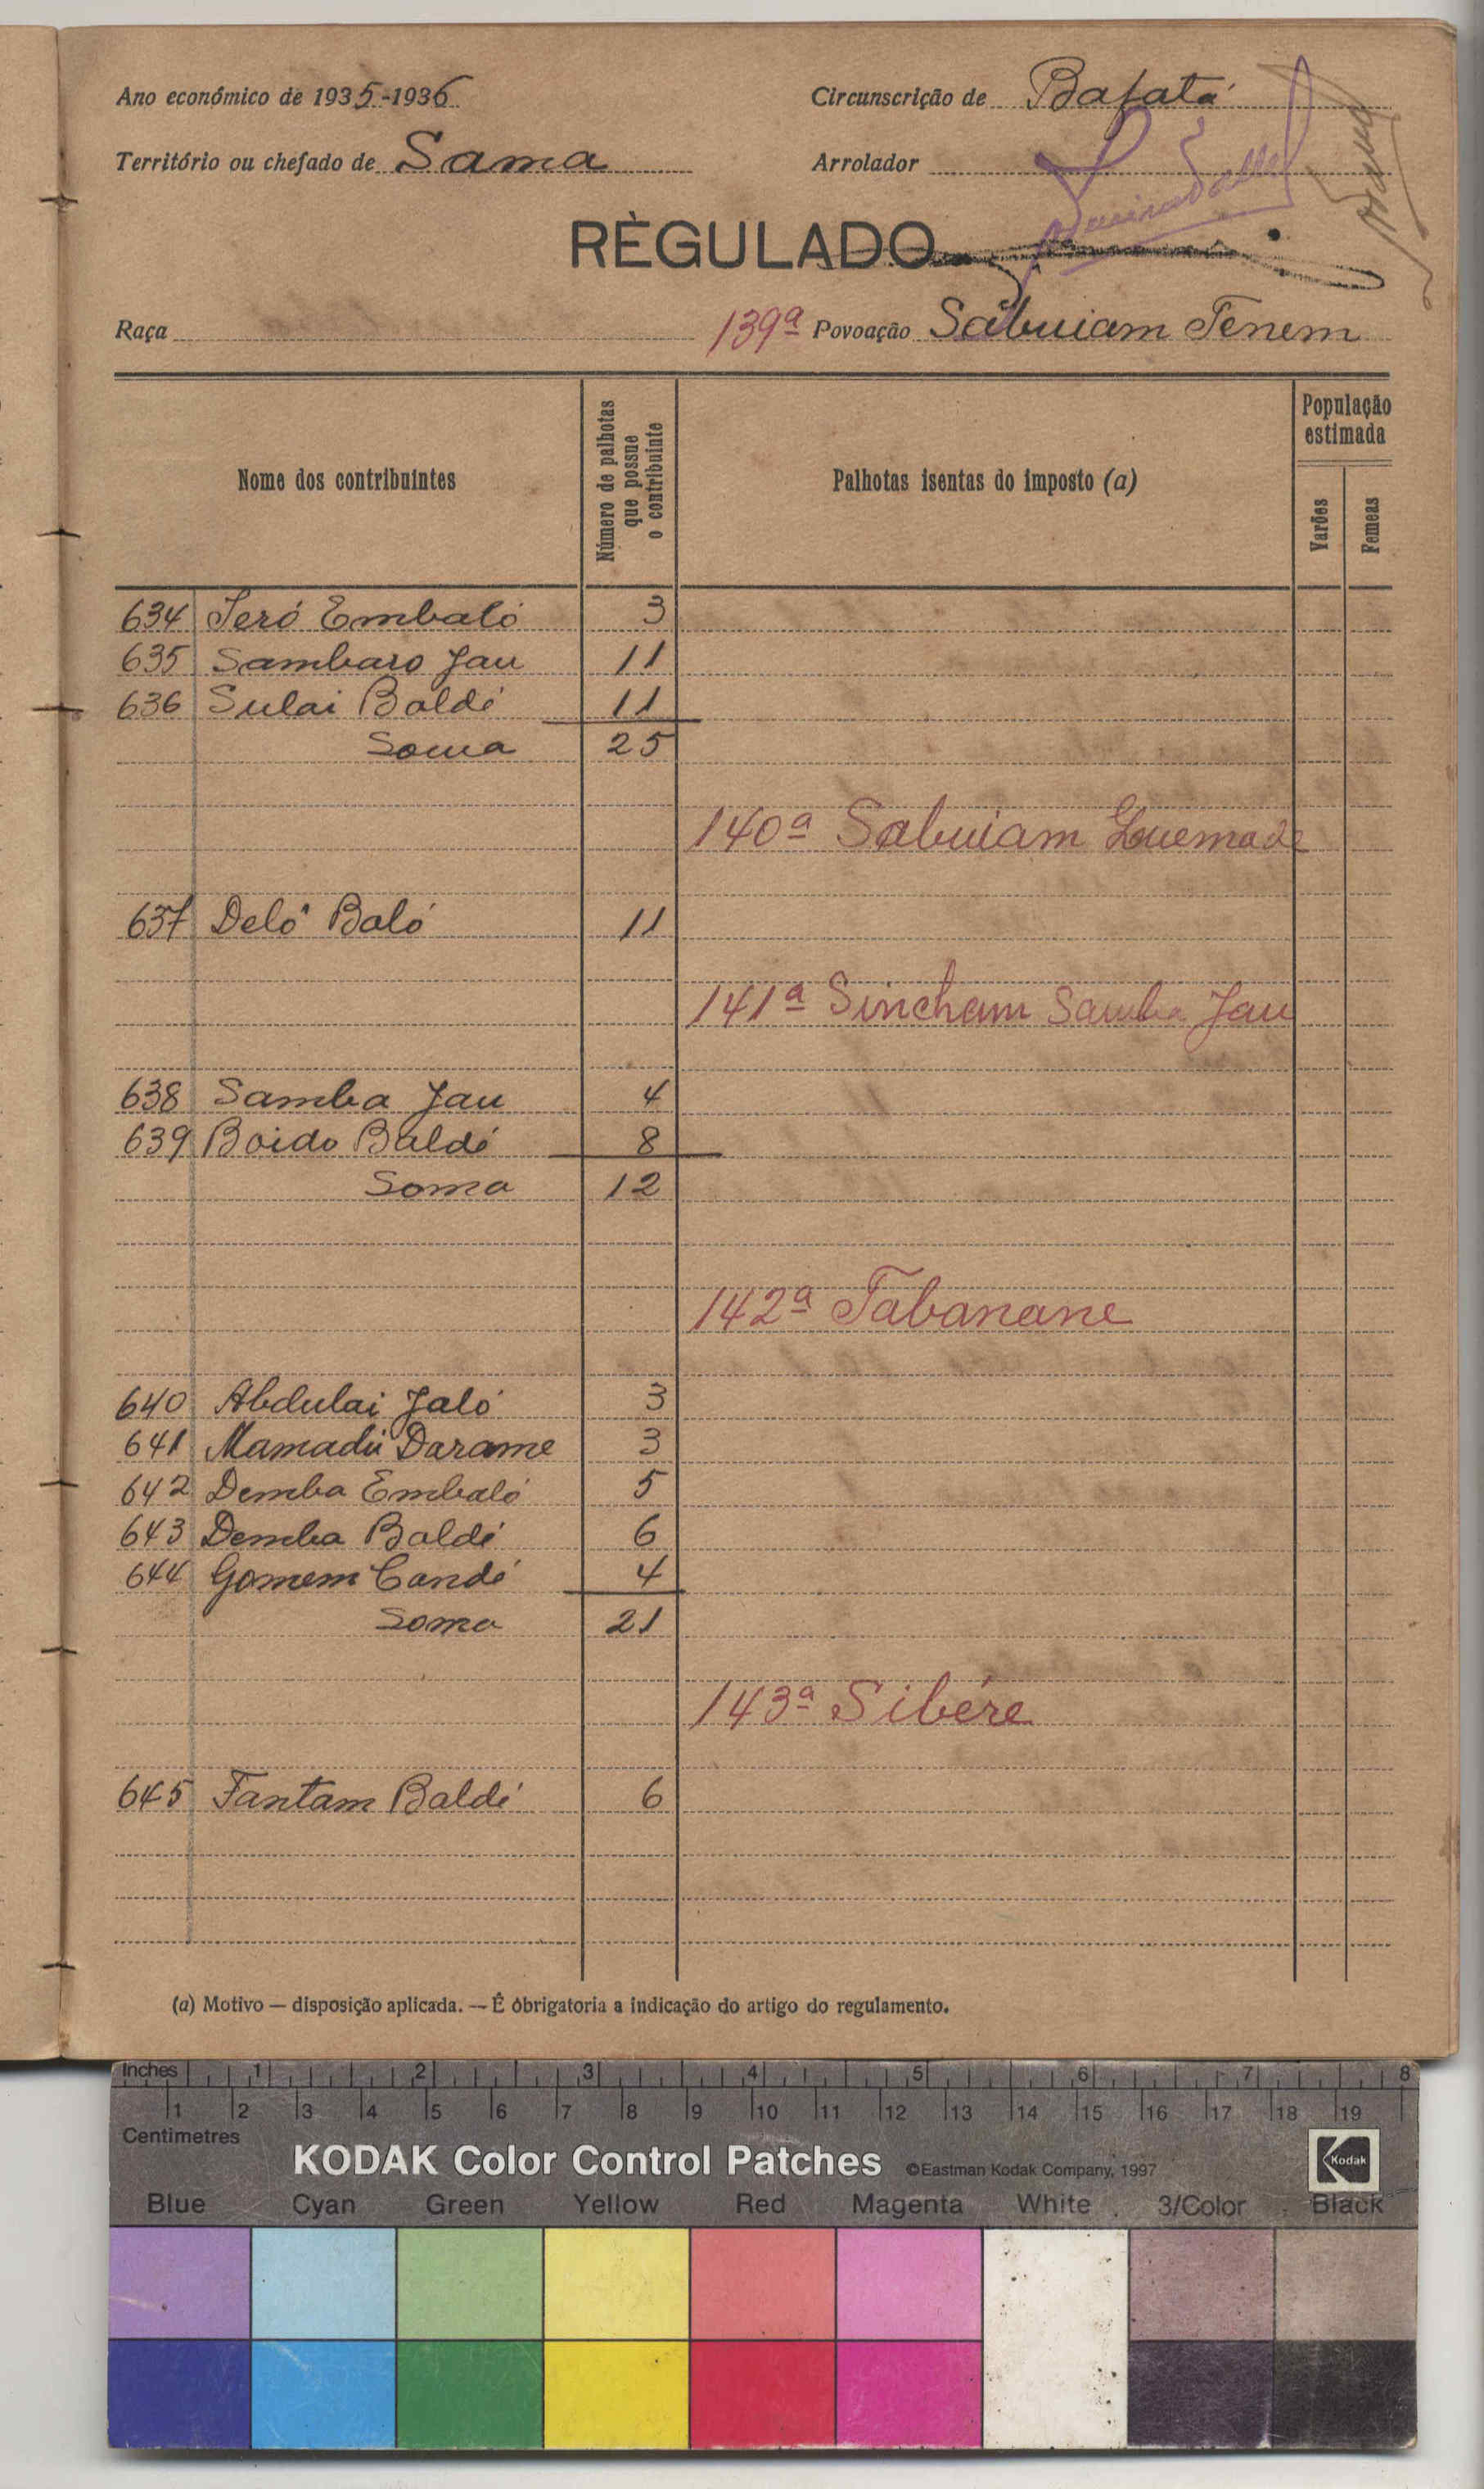 Ano económico de 1935-1936
Circunscrição de Bafatá
Território ou chefado de Sama
Arrolador
RÈGULADO
Raça
139ª Povoação Sabuiam Tenem
Nome dos contribuintes
Número de palhotas que possue o contribuinte
Palhotas isentas do imposto (a)
População estimada
Varões
Femeas
634 Jeró Embaló 3
635 Sambaro Jau 11
636 Sulai Baldé 11
Soma 25
140ª Sabuiam
637 Deló Baló 11
141ª Sincham Samba Jau
638 Samba Jau 4
639 Boido Baldé 8
Soma 12
142ª Tabanane
640 Abdulai Jaló 3
641 Mamadú Darame 3
642 Demba Embaló 5
643 Demba Baldé 6
644 Gomem Candé 4
Soma 21
143ª Sibére
645 Fantam Baldé 6
(a) Motivo — disposição aplicada. — Ê óbrigatoria a indicação do artigo do regulamento.
Inches 1 2 3 4 5 6 7 8
1 2 3 4 5 6 7 8 9 10 11 12 13 14 15 16 17 18 19
Centimetres
KODAK Color Control Patches ©Eastman Kodak Company, 1997 Kodak
Blue Cyan Green Yellow Red Magenta White 3/Color Black